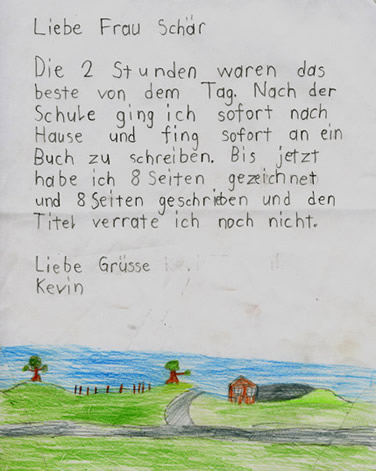 Liebe Frau Schär
Die 2 Stunden waren das
beste von dem Tag. Nach der
Schule ging ich sofort nach
Hause und fing sofort an ein
Buch zu schreiben. Bis jetzt
habe ich 8 Seiten gezeichnet
und 8 Seiten geschrieben und den
Titel verrate ich noch nicht.
Liebe Grüsse
Kevin